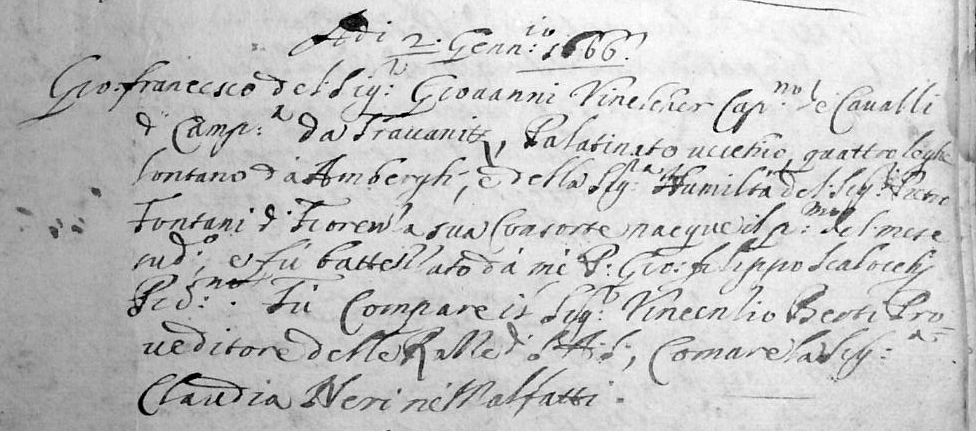 Adi 2. Genn:io 1666.
Gio: francesco del Sig:r Giovanni Vinelcher Cap:no de Cavalli
di Camp:a da Travanitz, Palatinato vecchio, quattro leghe
lontano da Ambergh, e della Sig:ra Humiltà del Sig:r Pietro
Fontani di Fiorenza sua Consorte nacque il p:mo del mese
sud:o, e fù battezzato da me P: Gio: filippo Scalocchi
Pio:no. Fù Compare il Sig:r Vincentio Berti Pro=
veditore delle di S: A: S:, Comare la Sig:a
Claudia Neri ne Malfatti.